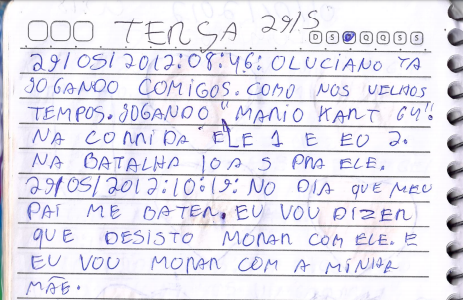 TERÇA 29/5
D S T Q Q S S
29/05/2012:08:46: O LUCIANO TA
JOGANDO COMIGOS. COMO NOS VELHOS
TEMPOS. JOGANDO "MARIO KART 64".
NA CORRIDA ELE 1 E EU 2.
NA BATALHA 10 A 5 PRA ELE.
29/05/2012:10:19: NO DIA QUE MEU
PAI ME BATER. EU VOU DIZER
QUE DESISTO MORAR COM ELE. E
EU VOU MORAR COM A MINHA
MÃE.